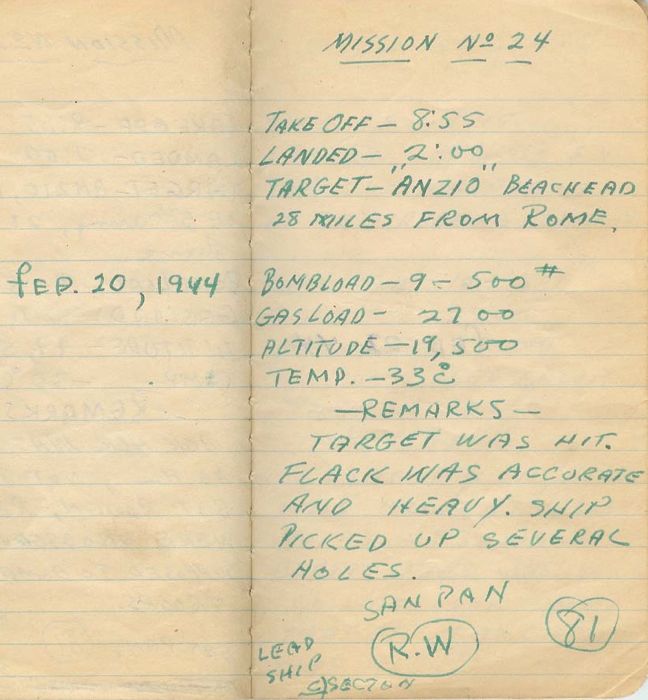 MISSION Nº 24
TAKE OFF – 8:55
LANDED – 2:00
TARGET – "ANZIO" BEACHEAD
28 MILES FROM ROME.
FEB. 20, 1944
BOMBLOAD – 9 – 500#
GAS LOAD – 2700
ALTITUDE – 19,500
TEMP. – 33°C
– REMARKS –
TARGET WAS HIT.
FLACK WAS ACCURATE
AND HEAVY. SHIP
PICKED UP SEVERAL
HOLES.
SAN PAN
R.W
81
LEAD
SHIP